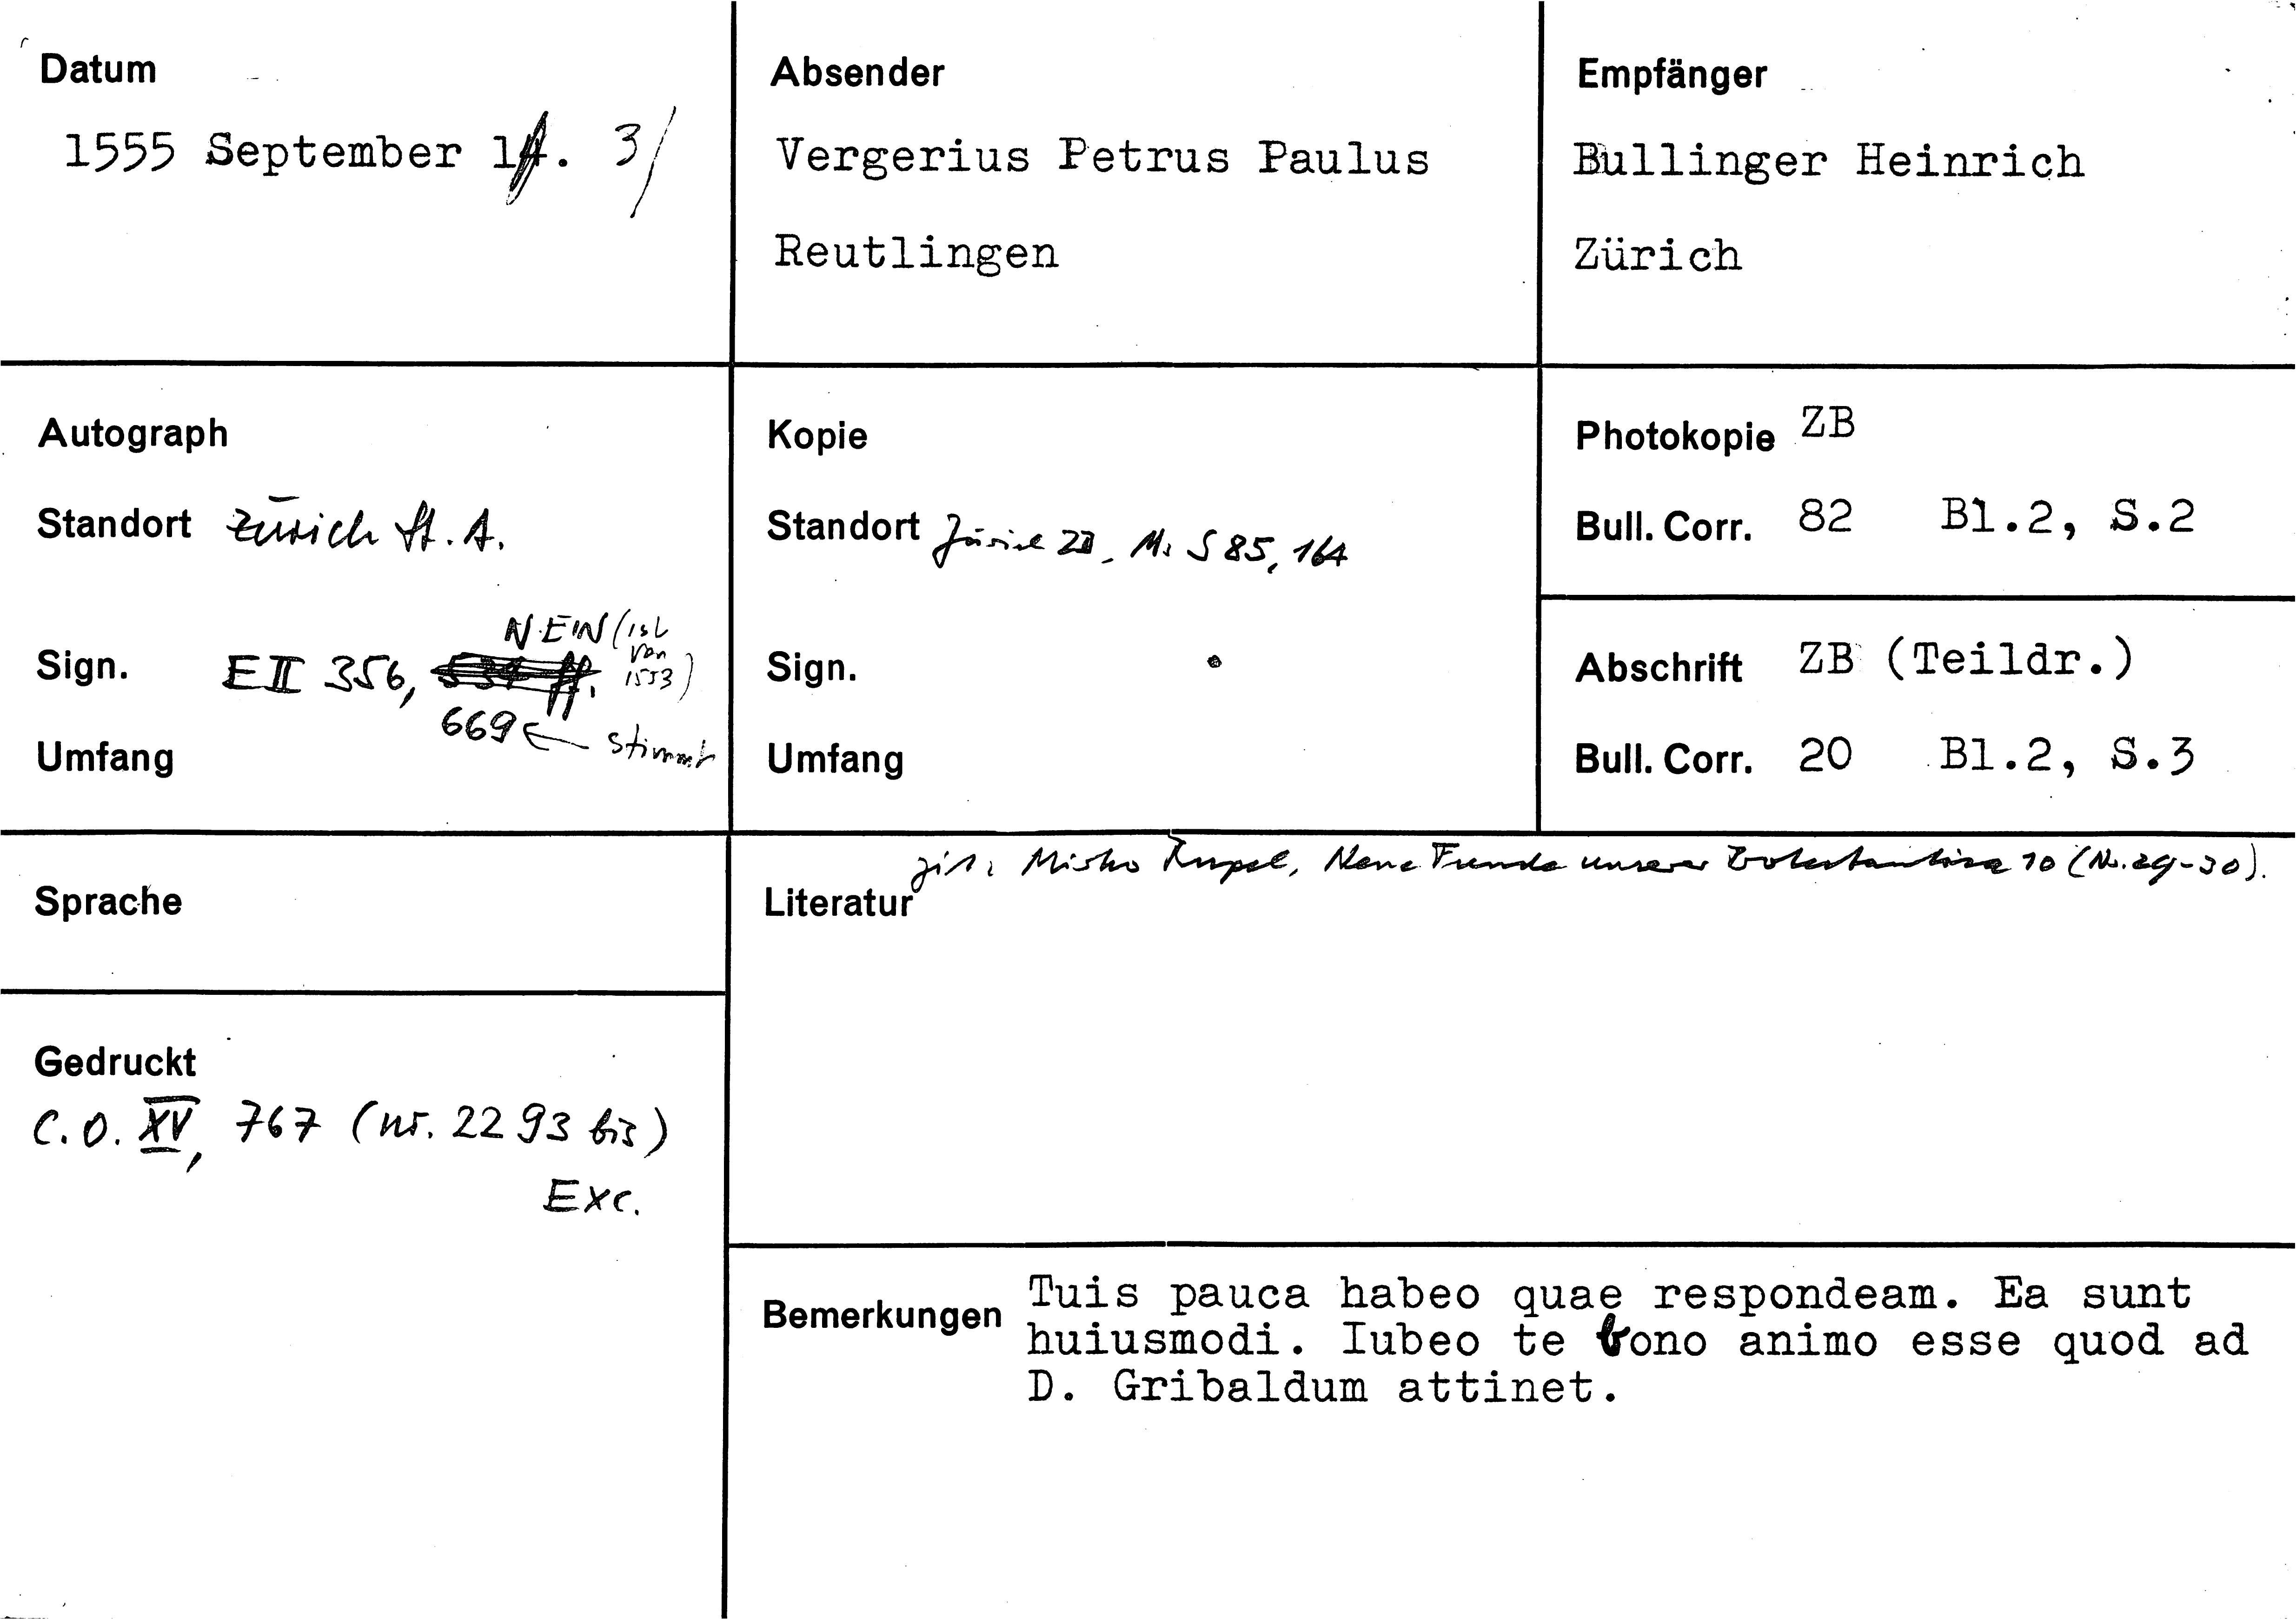 Datum
1555 September 14. 3/
Absender
Vergerius Petrus Paulus
Reutlingen
Empfänger
Bullinger Heinrich
Zürich
Autograph
Standort Zürich St. A.
Sign. E II 356, NEIN (ist von 1553)
669 ← stimmt
Umfang
Kopie
Standort Zürich ZB, Ms S 85, 164
Sign.
Umfang
Photokopie ZB
Bull. Corr. 82 Bl.2, S.2
Abschrift ZB (Teildr.)
Bull. Corr. 20 Bl.2, S.3
Sprache
Gedruckt
C.O. XV, 767 (nr. 2293 bis)
Exc.
Literatur zit: Mirko Rupel, Neue Funde unserer 10 (Nr. 29-30).
Bemerkungen Tuis pauca habeo quae respondeam. Ea sunt
huiusmodi. Iubeo te bono animo esse quod ad
D. Gribaldum attinet.